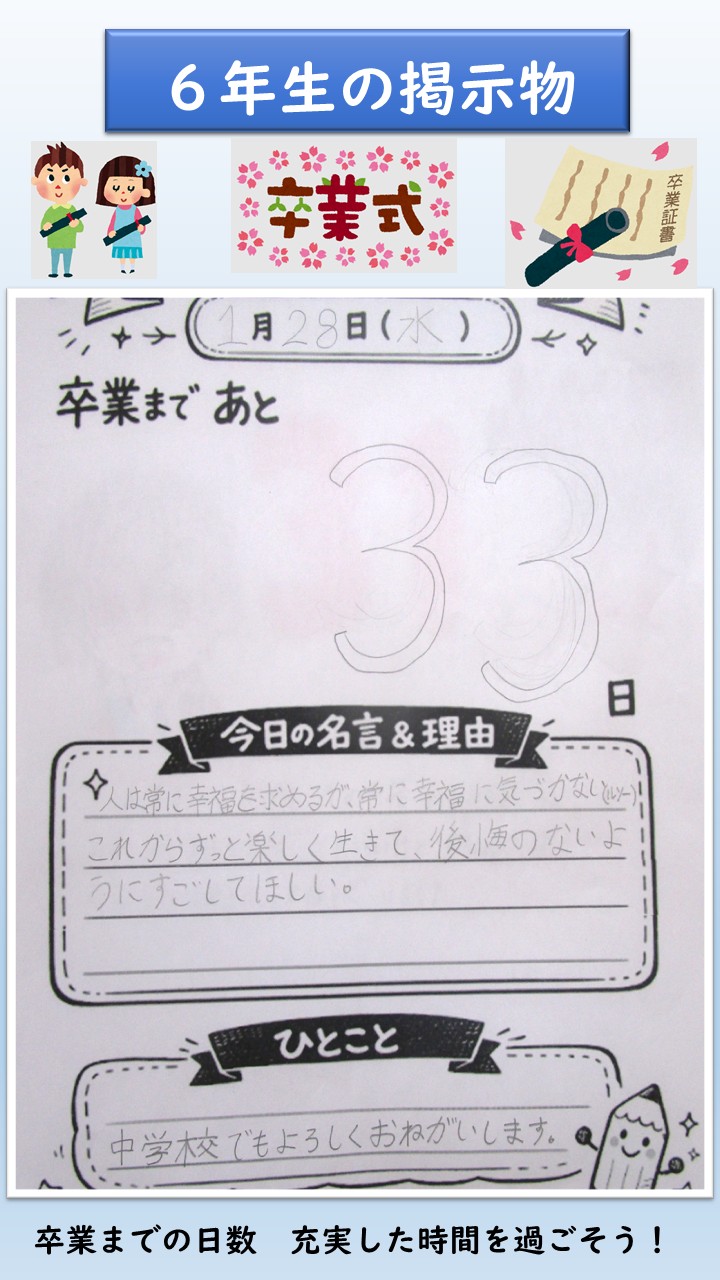 ６年生の掲示物
卒業式
卒業証書
1月28日(水)
卒業まで あと
33
日
今日の名言&理由
人は常に幸福を求めるが、常に幸福に気づかない(ルソー)
これからずっと楽しく生きて、後悔のないよ
うにすごしてほしい。
ひとこと
中学校でもよろしくおねがいします。
卒業までの日数　充実した時間を過ごそう！